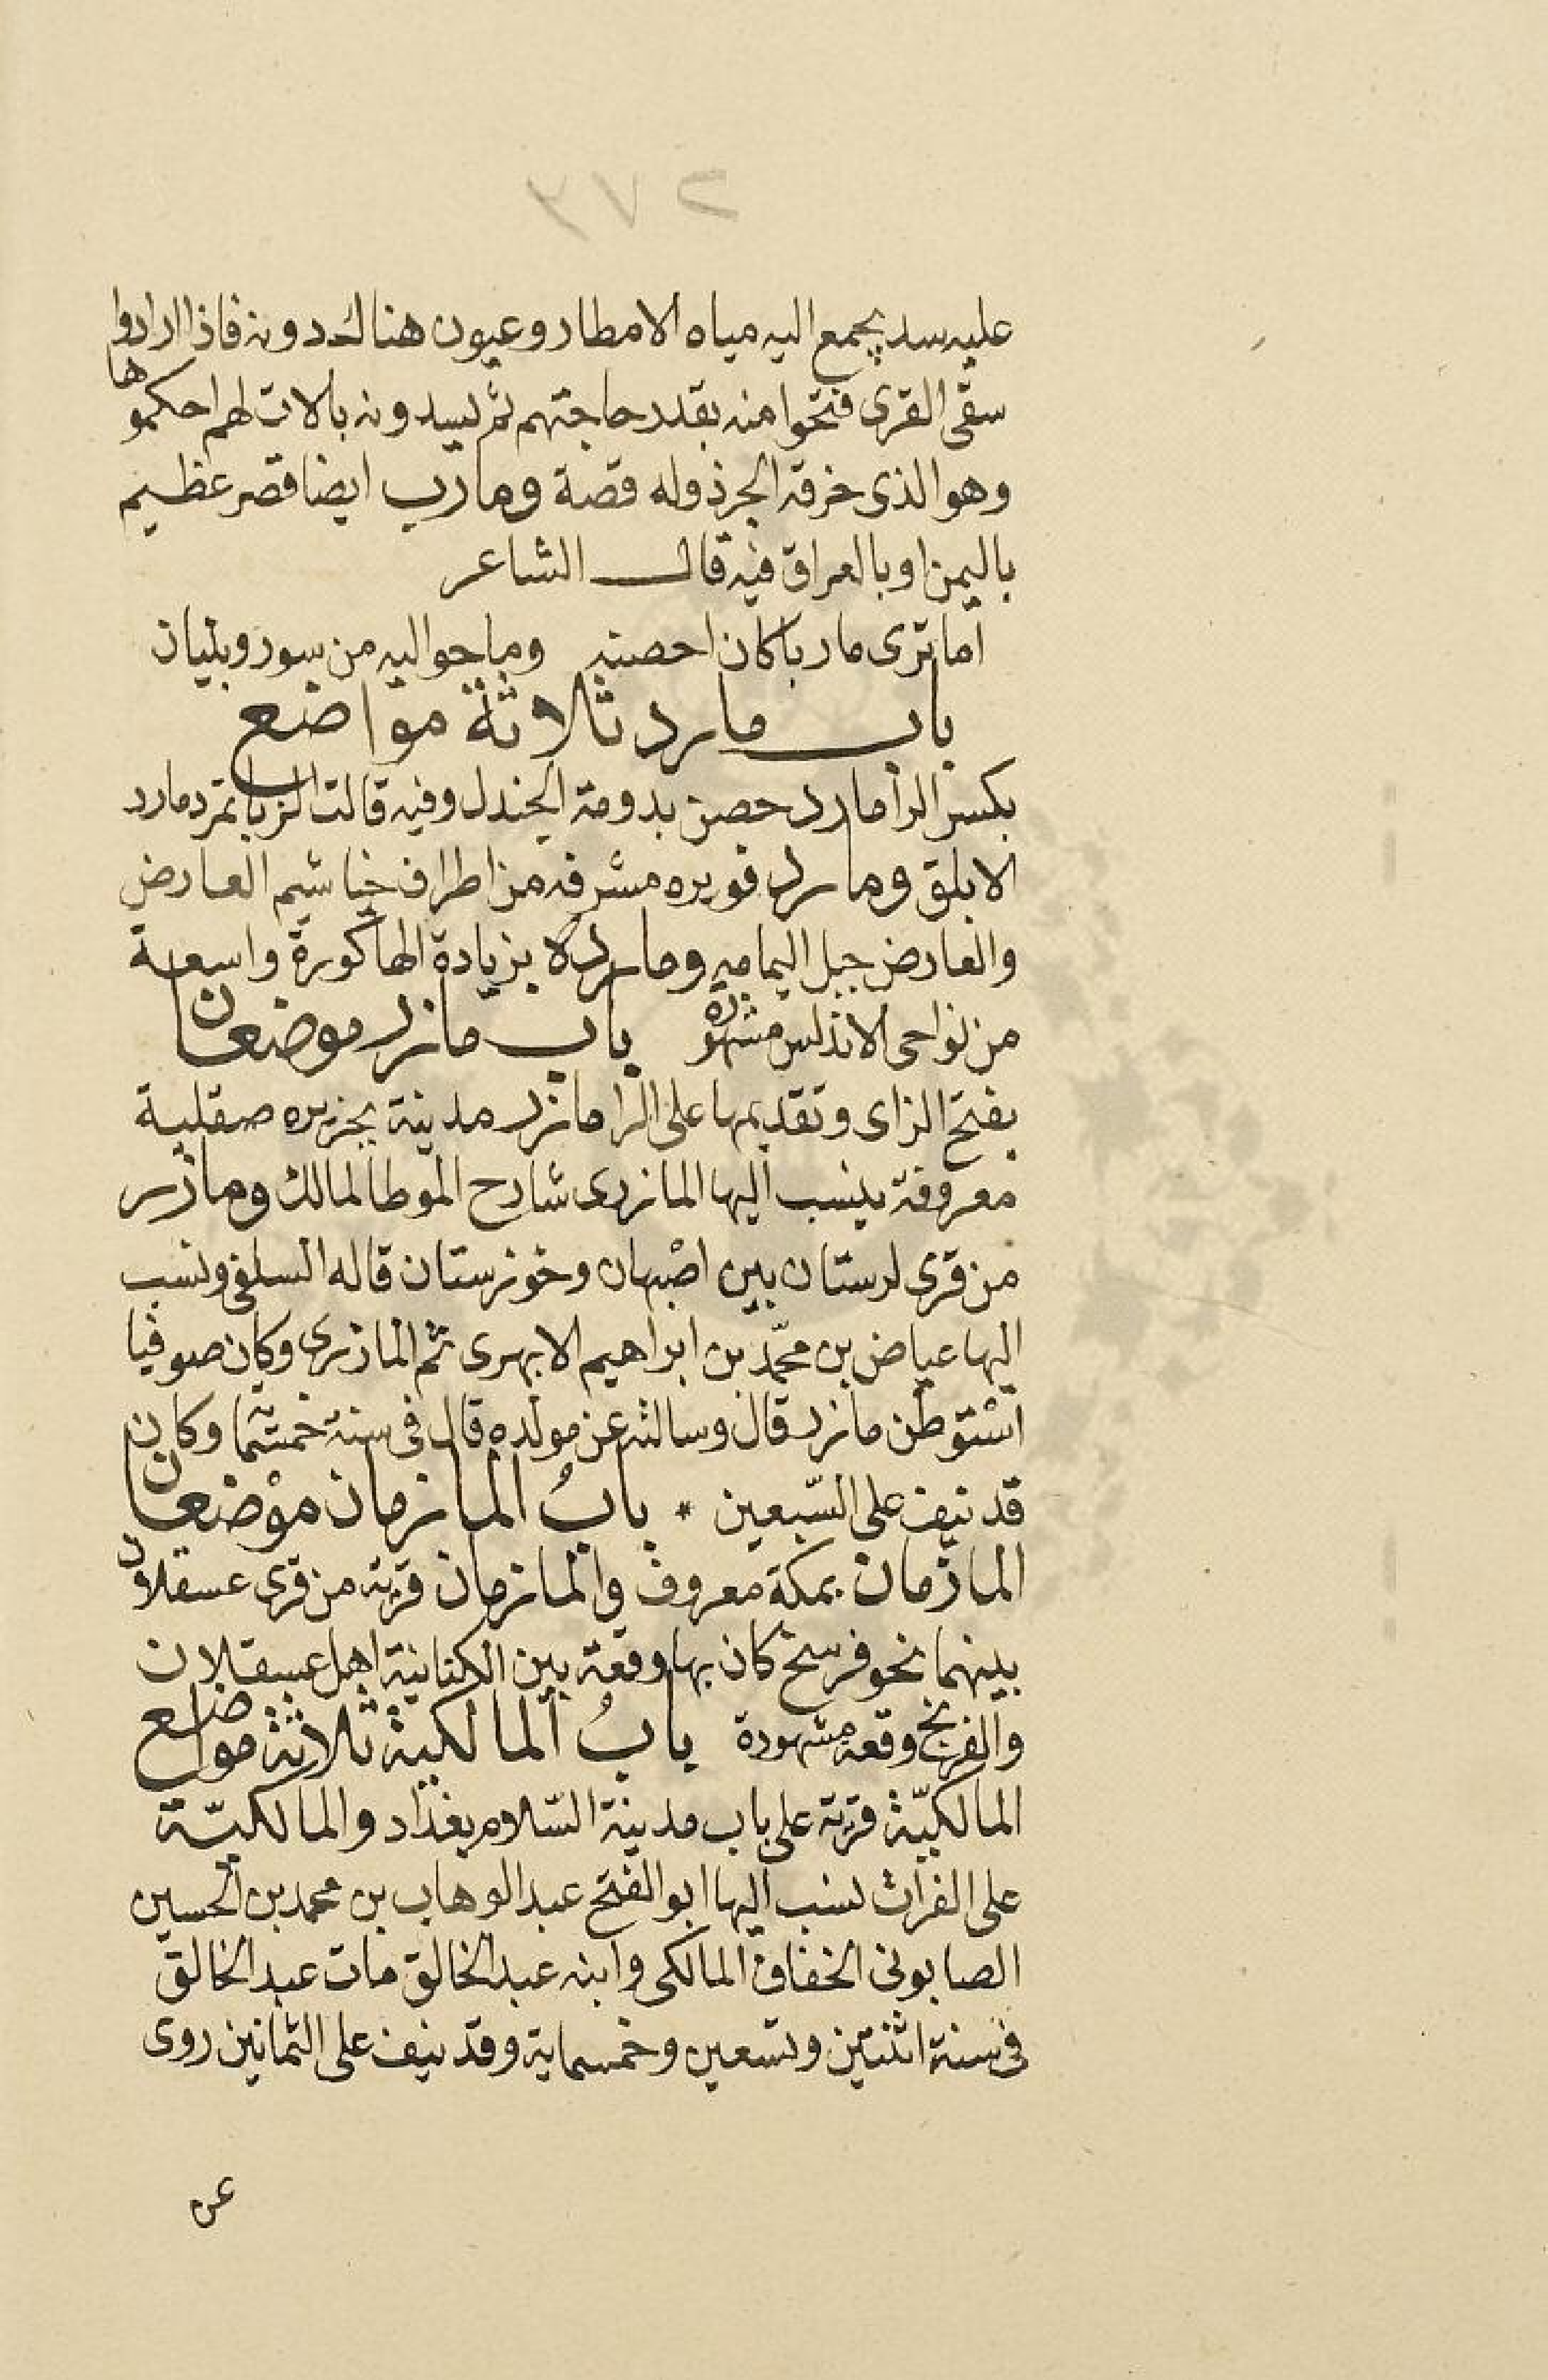 عليه سد يجمع اليه مياه الامطار وعيون هناك دونه فاذا ارادوا
سقى القرى فتحوا منه بقدر حاجتهم ثم يسدونه بالات لهم احكموها
وهو الذى خرقه الجرذ وله قصة ومارب ايضا قصر عظيم
باليمن او بالعراق فيه قال الشاعر
اما ترى ماربا كان احصنه وما حواليه من سور وبنيان
باب مارد ثلاثة مواضع
بكسر الرا مارد حصن بدومة الجندل وفيه قالت الزبا تمرد مارد
الابلق ومارد قويره مشرفه من اطراف خياشيم العارض
والعارض جبل اليمامه وماردة بزيادة الها كورة واسعة
من نواحى الاندلس مشهورة باب مازر موضعان
بفتح الزاى وتقديمها على الرا مازر مدينة بجزيره صقلية
معروفة ينسب اليها المازرى شارح الموطا لمالك ومازر
من قرى لرستان بين اصبهان وخوزستان قاله السلفى ونسب
اليها عياض بن محمد بن ابراهيم الابهرى ثم المازرى وكان صوفيا
استوطن مازر قال وسالته عن مولده قال فى سنة خمسماية وكان
قد نيف على السبعين * باب المازمان موضعان
المازمان بمكة معروف والمازمان قرية من قرى عسقلان
بينهما نحو فرسخ كان بها وقعة بين الكنانية اهل عسقلان
والفرنج وقعة مشهودة باب المالكية ثلاثة مواضع
المالكيّة قرية على باب مدينة السّلام بغداد والمالكيّة
على الفرات نسب اليها ابو الفتح عبد الوهاب بن محمد بن الحسين
الصابونى الخفاف المالكى وابنه عبد الخالق مات عبد الخالق
فى سنة اثنتين وتسعين وخمسماية وقد نيف على الثمانين روى
عن